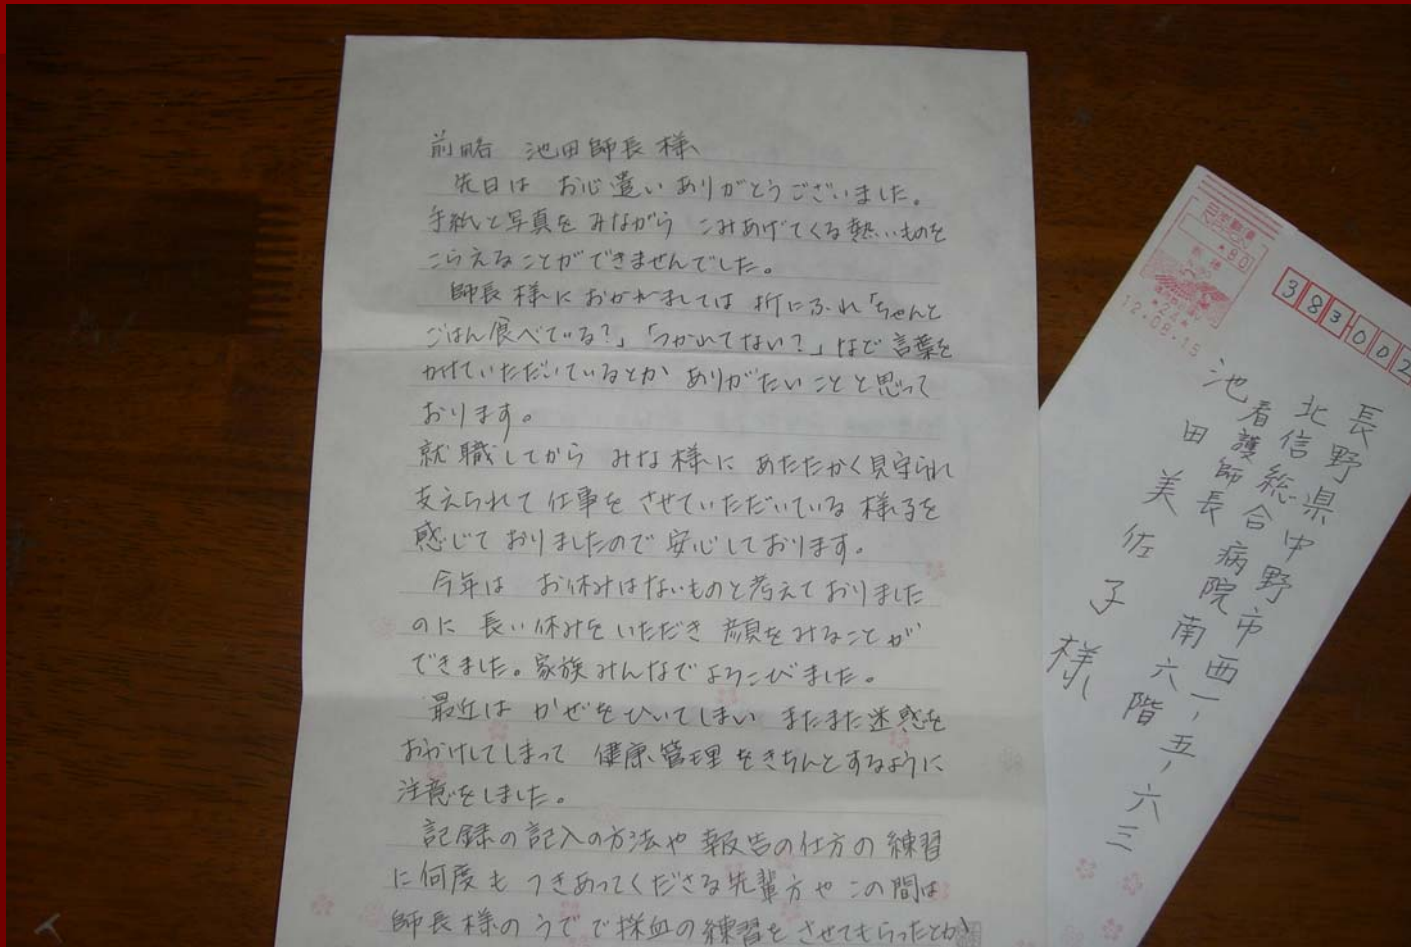 前略 池田師長様
先日は お心遣いありがとうございました。
手紙と写真を みながら こみあげてくる熱いものを
こらえることができませんでした。
師長様に おかれましては 折にふれ「ちゃんと
ごはん食べている?」「つかれてない?」など 言葉を
かけていただいているとか ありがたいことと思って
おります。
就職してから みな様に あたたかく見守られ
支えられて 仕事を させていただいている 様子を
感じて おりましたので 安心しております。
今年は お休みはないものと考えて おりました
のに 長い休みを いただき 顔をみることが
できました。家族みんなでよろこびました。
最近は かぜをひいてしまい またまた迷惑を
おかけしてしまって 健康管理をきちんとするように
注意をしました。
記録の記入の方法や 報告の仕方の 練習
に何度も つきあってくださる先輩方や この間は
師長様のうでで採血の練習を させてもらったとか
日本郵便
NIPPON
80
12.08.15
383-002
長野県中野市西一-五-六三
北信総合病院南六階
看護師長
池田美佐子様